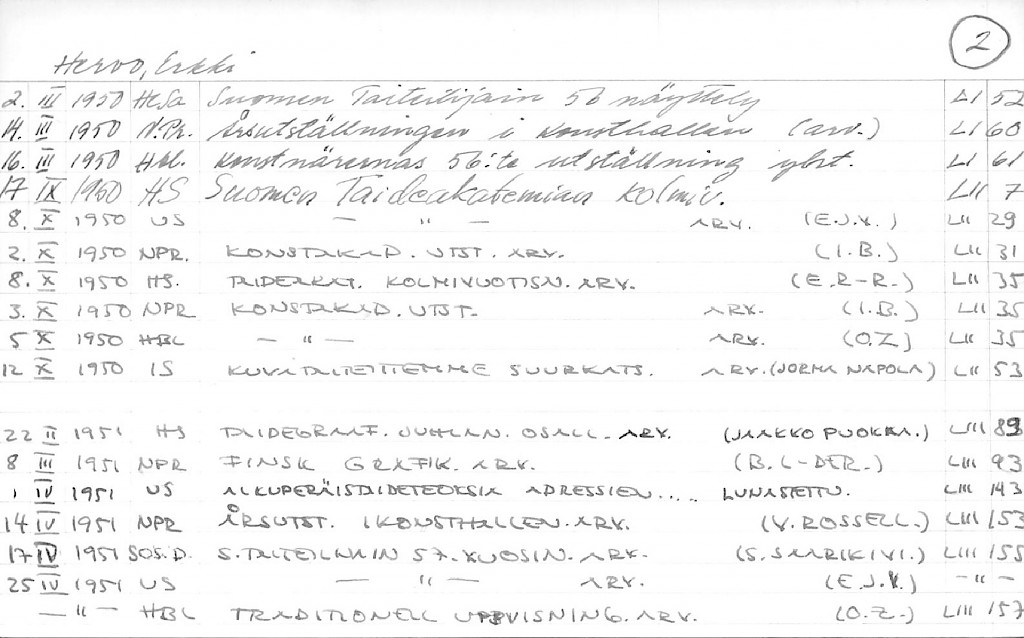 2
Hervo, Erkki
2. III 1950 HeSa Suomen Taiteilijain 56 näyttely LI 52
14. III 1950 N.Pr. Årsutställningen i konsthallen (arv.) LI 60
16. III 1950 Hbl. Konstnärernas 56:te utställning ybrt. LI 61
17 IX 1950 HS Suomen Taideakatemian kolmiv. LII 7
8. X 1950 US — " — ARV. (E.J.V.) LII 29
2. X 1950 NPR. KONSTAKAD. UTST. ARV. (I.B.) LII 31
8. X 1950 HS. TAIDEAKAT. KOLMIVUOTISN. ARV. (E.R-R.) LII 35
3. X 1950 NPR KONSTAKAD. UTST. ARV. (I.B.) LII 35
5 X 1950 HBL — " — ARV. (O.Z) LII 35
12 X 1950 IS KUVATAITEITTEMME SUURKATS. ARV. (JORMA NAPOLA) LII 53
22 II 1951 HS TAIDEGRAAF. JUHLAN. OSALL. ARV. (JAAKKO PUOKKA.) LIII 89
8 III 1951 NPR FINSK GRAFIK. ARV. (B. L-DER.) LIII 93
1 IV 1951 US ALKUPERÄISTAIDETEOKSIA ADRESSIEN.... LUNASTETTU. LIII 143
14 IV 1951 NPR ÅRSUTST. I KONSTHALLEN. ARV. (V. ROSSELL.) LIII 153
17 IV 1951 SOS.D. S. TAITEILIJAIN 57. VUOSIN. ARV. (S. SAARIKIVI.) LIII 155
25 IV 1951 US — " — ARV. (E.J.V.) — " —
— " — HBL TRADITIONELL UPPVISNING. ARV. (O.Z.) LIII 157